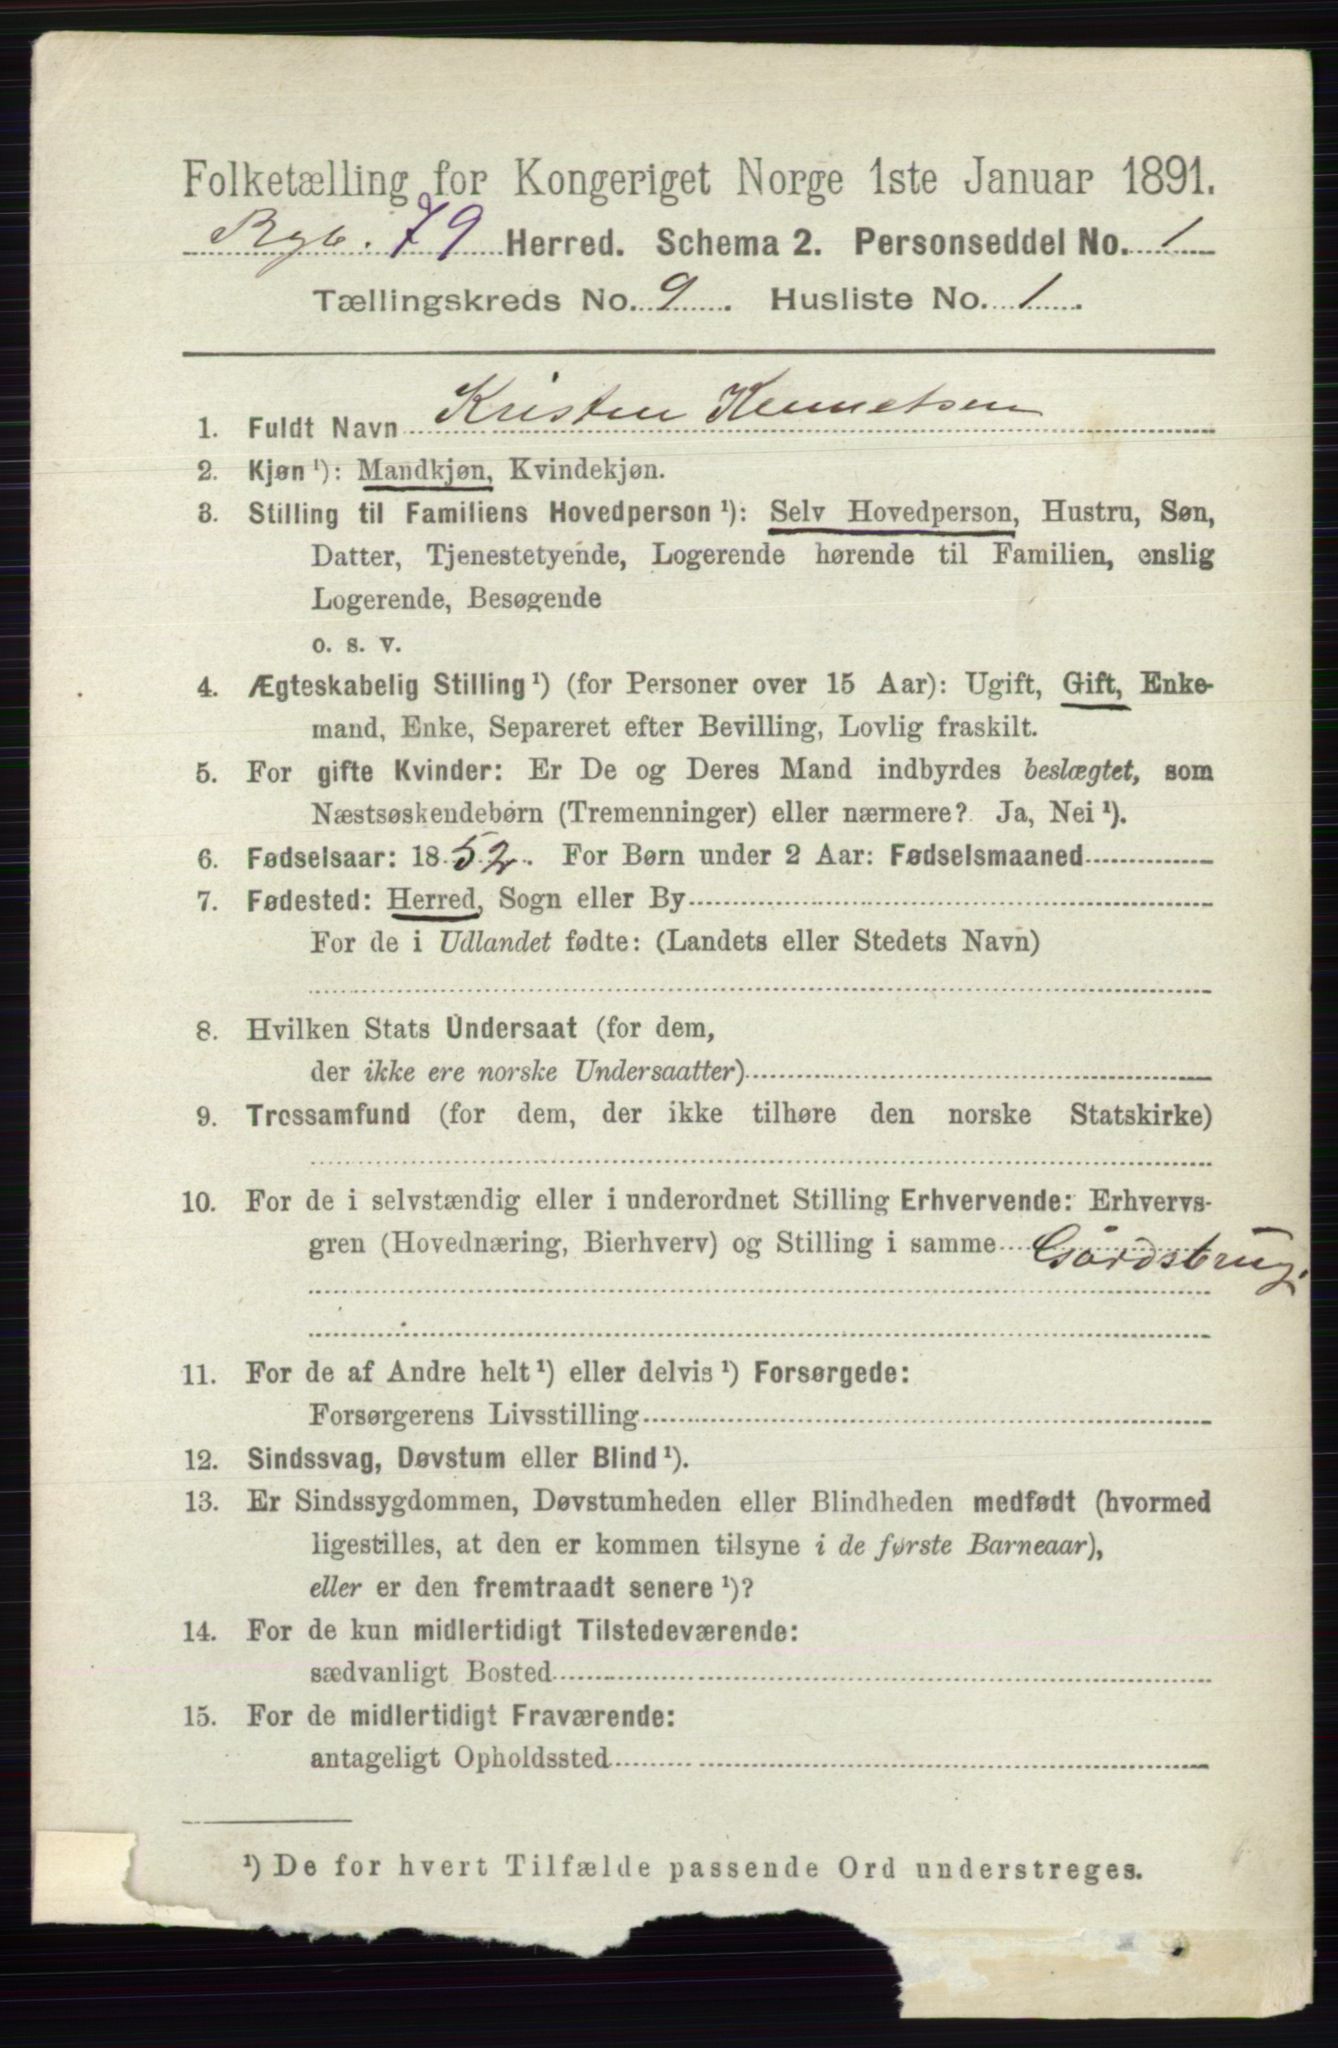 Folketælling for Kongeriget Norge 1ste Januar 1891.
79 Herred. Schema 2. Personseddel No. 1
Tællingskreds No. 9. Husliste No. 1.
1. Fuldt Navn Kristen Kennetsen
2. Kjøn ¹): Mandkjøn, Kvindekjøn.
3. Stilling til Familiens Hovedperson ¹): Selv Hovedperson, Hustru, Søn,
Datter, Tjenestetyende, Logerende hørende til Familien, enslig
Logerende, Besøgende
o. s. v.
4. Ægteskabelig Stilling ¹) (for Personer over 15 Aar): Ugift, Gift, Enke-
mand, Enke, Separeret efter Bevilling, Lovlig fraskilt.
5. For gifte Kvinder: Er De og Deres Mand indbyrdes beslægtet, som
Næstsøskendebørn (Tremenninger) eller nærmere? Ja, Nei ¹).
6. Fødselsaar: 1852. For Børn under 2 Aar: Fødselsmaaned
7. Fødested: Herred, Sogn eller By
For de i Udlandet fødte: (Landets eller Stedets Navn)
8. Hvilken Stats Undersaat (for dem,
der ikke ere norske Undersaatter)
9. Trossamfund (for dem, der ikke tilhøre den norske Statskirke)
10. For de i selvstændig eller i underordnet Stilling Erhvervende: Erhvervs-
gren (Hovednæring, Bierhverv) og Stilling i samme Gårdsbrug.
11. For de af Andre helt ¹) eller delvis ¹) Forsørgede:
Forsørgerens Livsstilling
12. Sindssvag, Døvstum eller Blind ¹).
13. Er Sindssygdommen, Døvstumheden eller Blindheden medfødt (hvormed
ligestilles, at den er kommen tilsyne i de første Barneaar),
eller er den fremtraadt senere ¹)?
14. For de kun midlertidigt Tilstedeværende:
sædvanligt Bosted
15. For de midlertidigt Fraværende:
antageligt Opholdssted
¹) De for hvert Tilfælde passende Ord understreges.